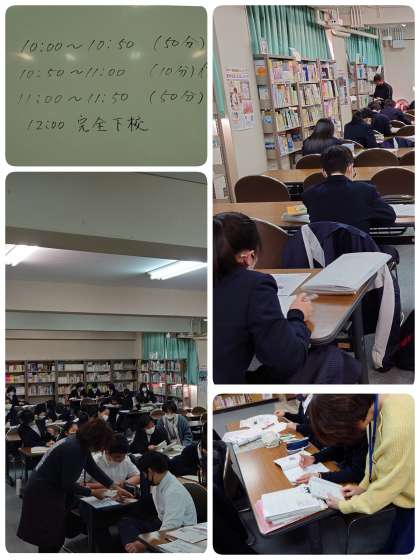 10:00〜10:50 (50分)
10:50〜11:00 (10分)
11:00〜11:50 (50分)
12:00 完全下校